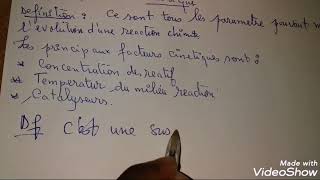 Definition : Ce sont tous les parametre pouvant m
l'évolution d'une reaction chim
Les principaux facteurs cinetiques sont :
* Concentration des reactif
* Temperature du milieu reaction
* Catalyseurs.
Df C'est une sus
Made with
VideoShow